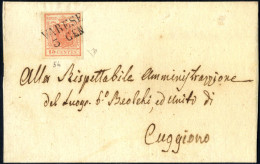 VARESE
5 GEN
Alla Rispettabile Amministrazione
del Luogo Pio Beolchi, ed uniti di
Cuggiono